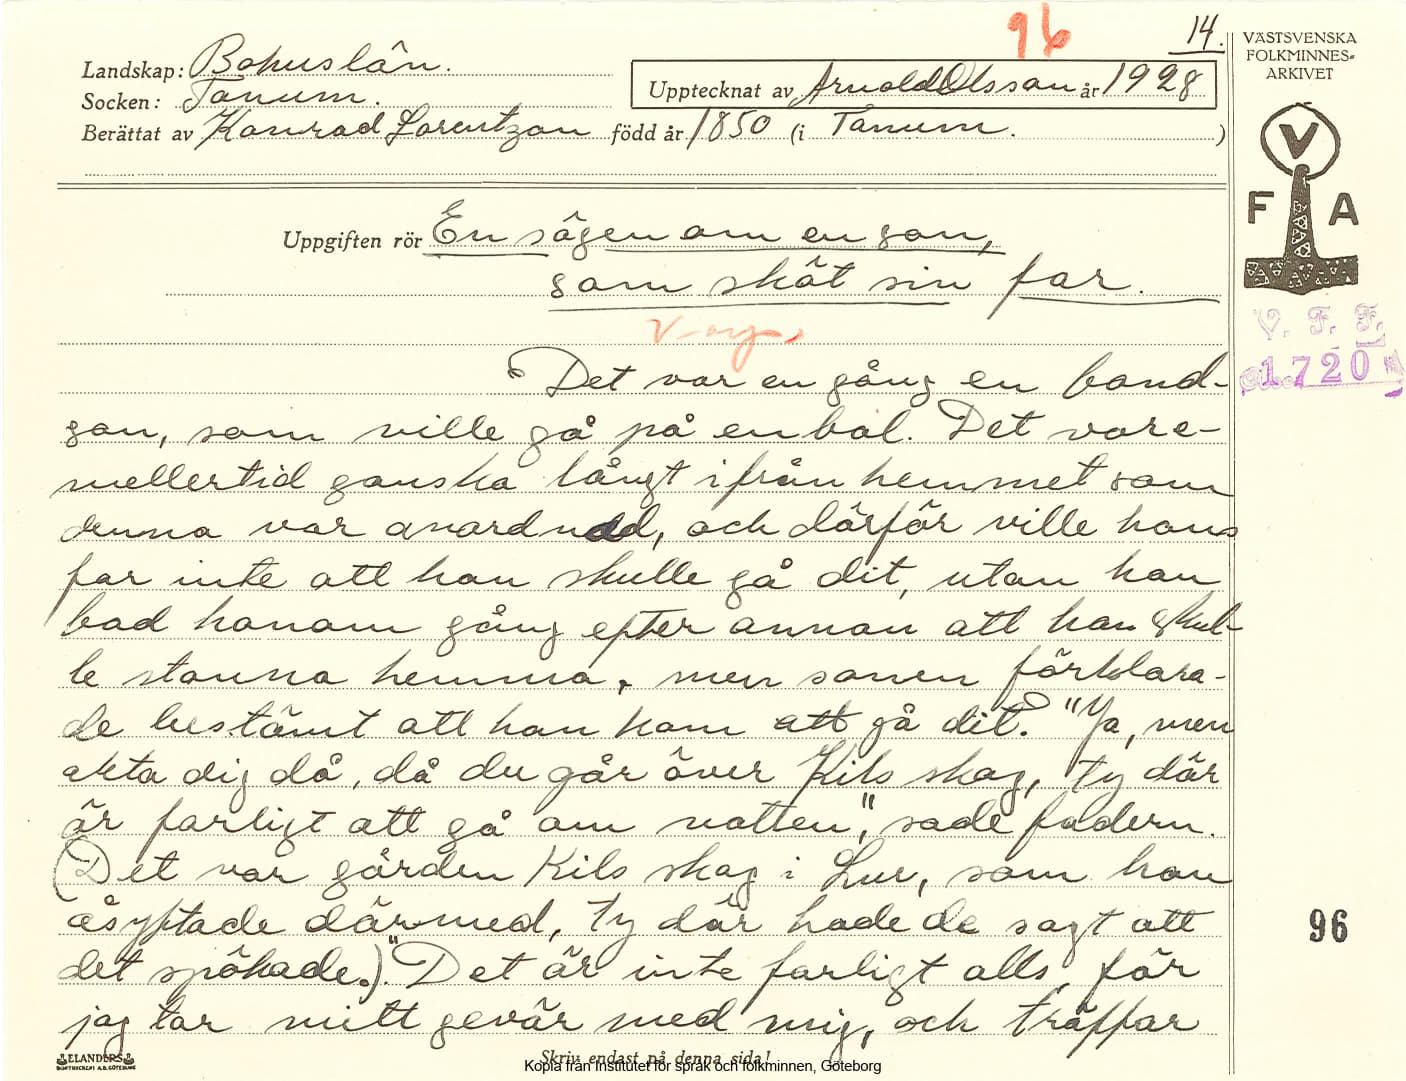 96
14.
VÄSTSVENSKA
FOLKMINNES-
ARKIVET
Landskap: Bohuslän.
Socken: Tanum.
Upptecknat av Arnold Olsson år 1928
Berättat av Konrad Lorentzon född år 1850 (i Tanum. )
V
F A
Uppgiften rör En sägen om en son,
som sköt sin far.
V. F. F.
1720
Det var en gång en bond-
son, som ville gå på en bal. Det var e-
mellertid ganska långt ifrån hemmet som
denna var anordnad, och därför ville hans
far inte att han skulle gå dit, utan han
bad honom gång efter annan att han skul-
le stanna hemma, men sonen förklara-
de bestämt att han kom att gå dit. "Ja, men
akta dig då, då du går över Kils skog, ty där
är farligt att gå om natten", sade fadern.
(Det var gården Kils skog i Lur, som han
åsyftade därmed, ty där hade de sagt att
det spökade.) "Det är inte farligt alls, för
jag tar mitt gevär med mig, och träffar
96
ELANDERS
BOKTRYCKERI A.B. GÖTEBORG
Skriv endast på denna sida!
Kopia från Institutet för språk och folkminnen, Göteborg